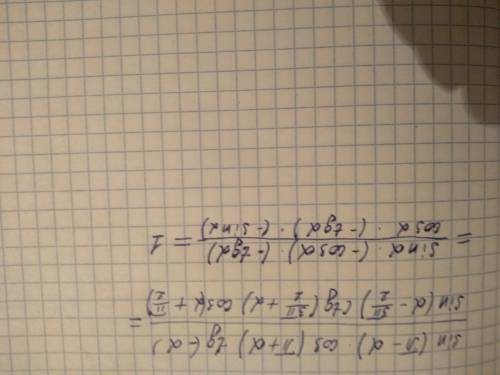 sin(π-α) · cos(π+α) tg(-α)
sin(α - 3π/2) ctg(3π/2 + α) cos(α + π/2) =
= sinα · (-cosα) · (-tgα) / cosα · (-tgα) · (-sinα) = 1